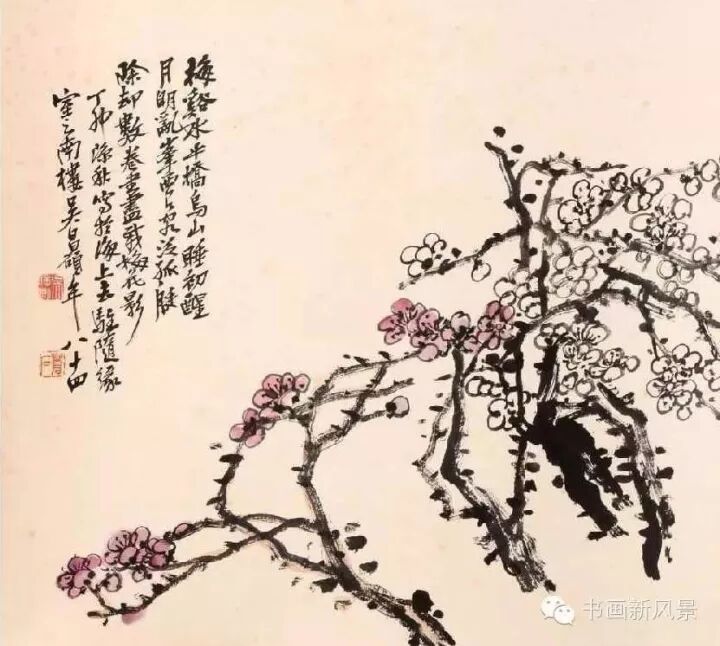 梅谿水平橋烏山睡初醒
月明亂峯西有客泛孤艇
除却數卷書盡載梅花影
丁卯深秋寫於海上去駐隨緣
室之南樓吴昌碩年八十四
书画新风景